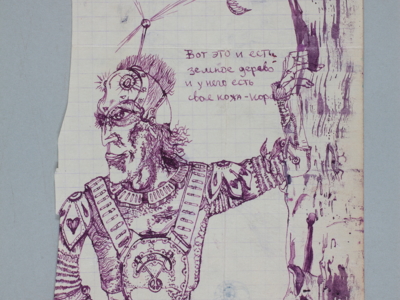 Вот это и есть
земное дерево
и у него есть
своя кожа-кора